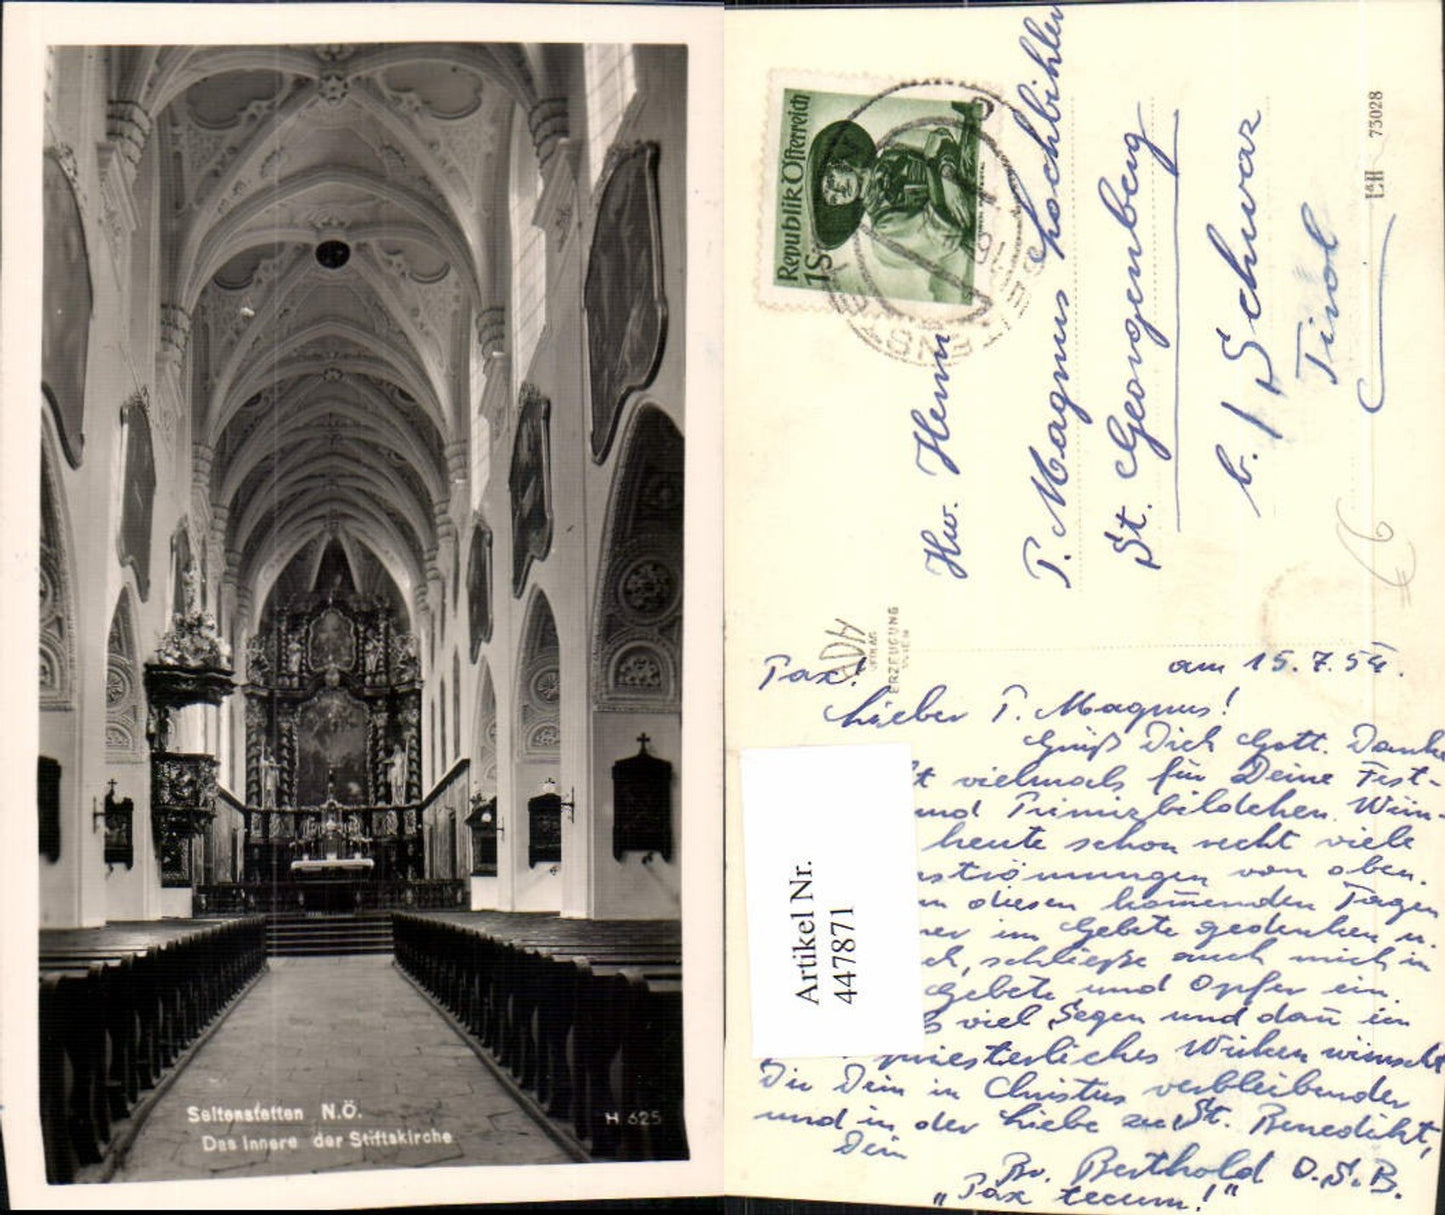 Seitenstetten N.Ö.
Das Innere der Stiftskirche
H 625
Republik Österreich
1S
SEITENSTETTEN
Hw. Herrn
P. Magnus Hochbihler
St. Georgenberg
b./ Schwaz
Tirol
L&H 73028
ADM
VERLAG
ERZEUGUNG
WIEN
Pax!
am 15.7.54.
Lieber P. Magnus!
Grüß Dich Gott. Danke
vielmals für Deine Fest-
und Primizbildchen. Wün-
heute schon recht viele
von oben.
diesen kom̄enden Tagen
im Gebete gedenken u.
schließe auch mich in
Gebete und Opfer ein.
viel Segen und dan̄ ein
priesterliches Wirken wünscht
Dir Dein in Christus verbleibender
und in der Liebe zu St. Benedikt,
Dein
Br. Berthold O.S.B.
„Pax tecum!"
Artikel Nr.
447871